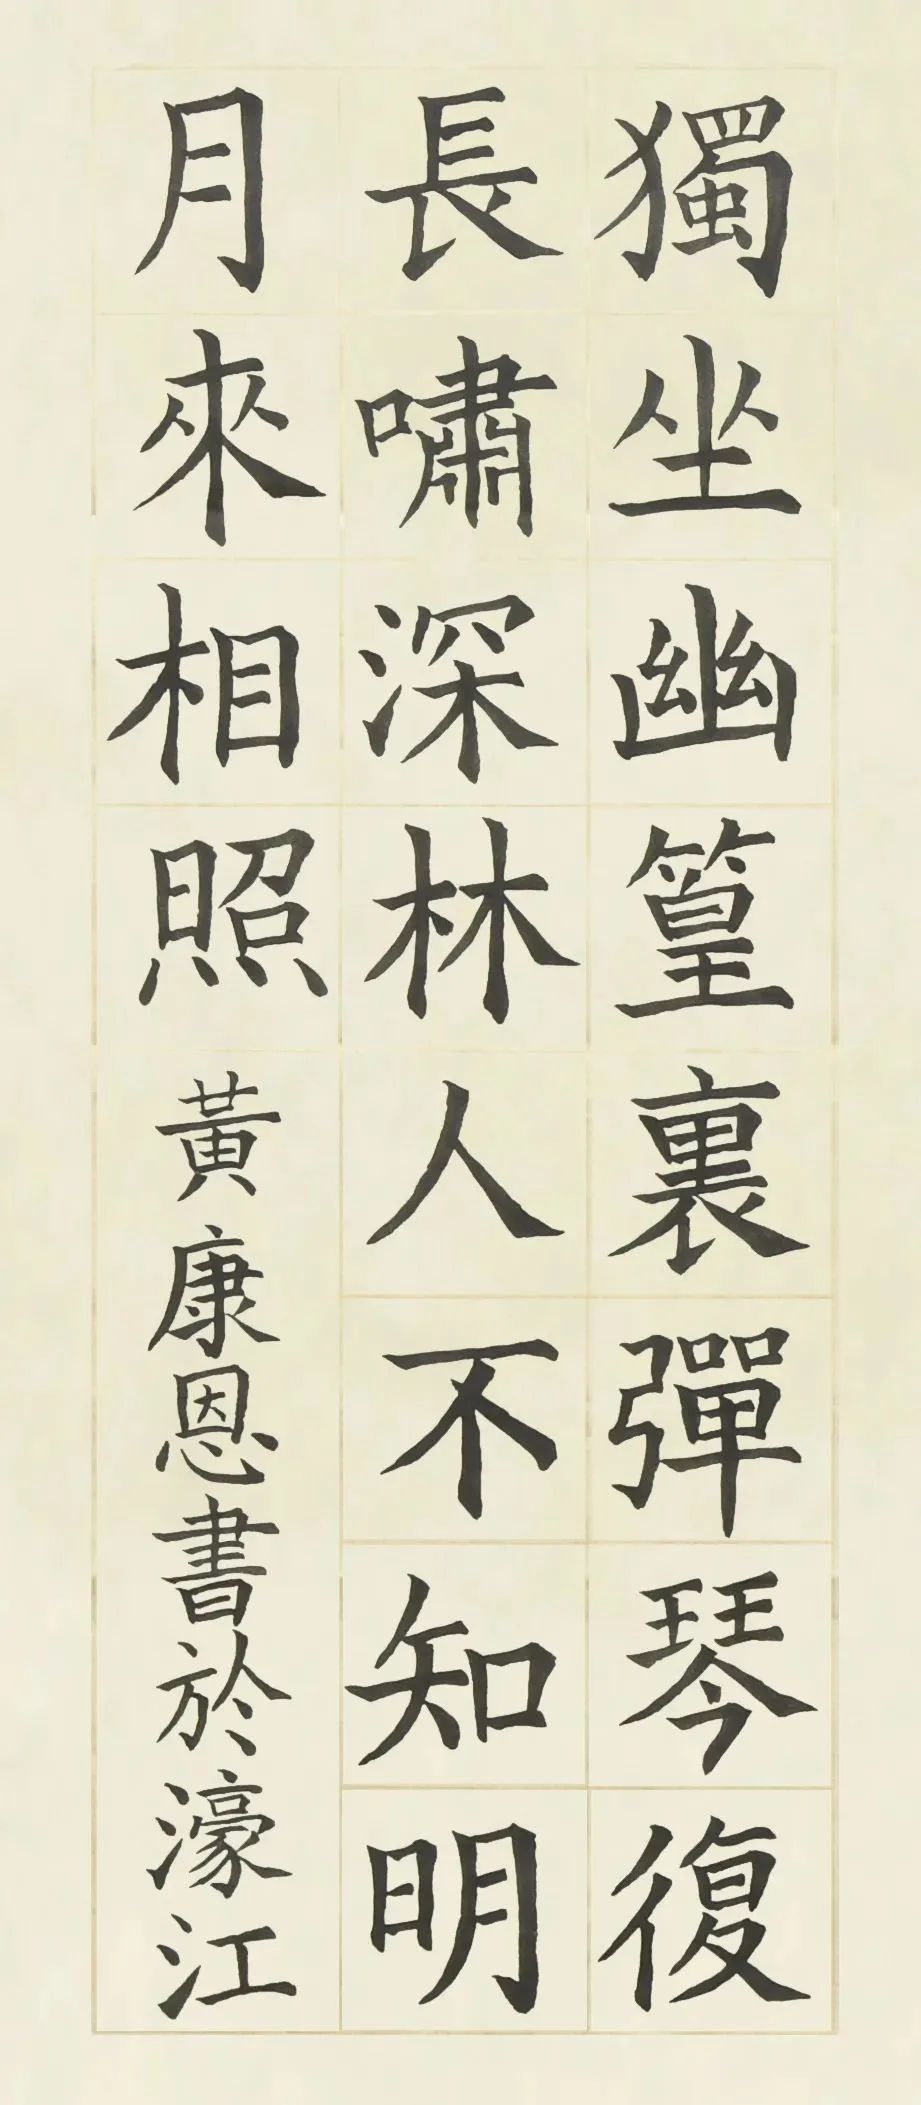 獨坐幽篁裏彈琴復
長嘯深林人不知明
月來相照
黃康恩書於濠江